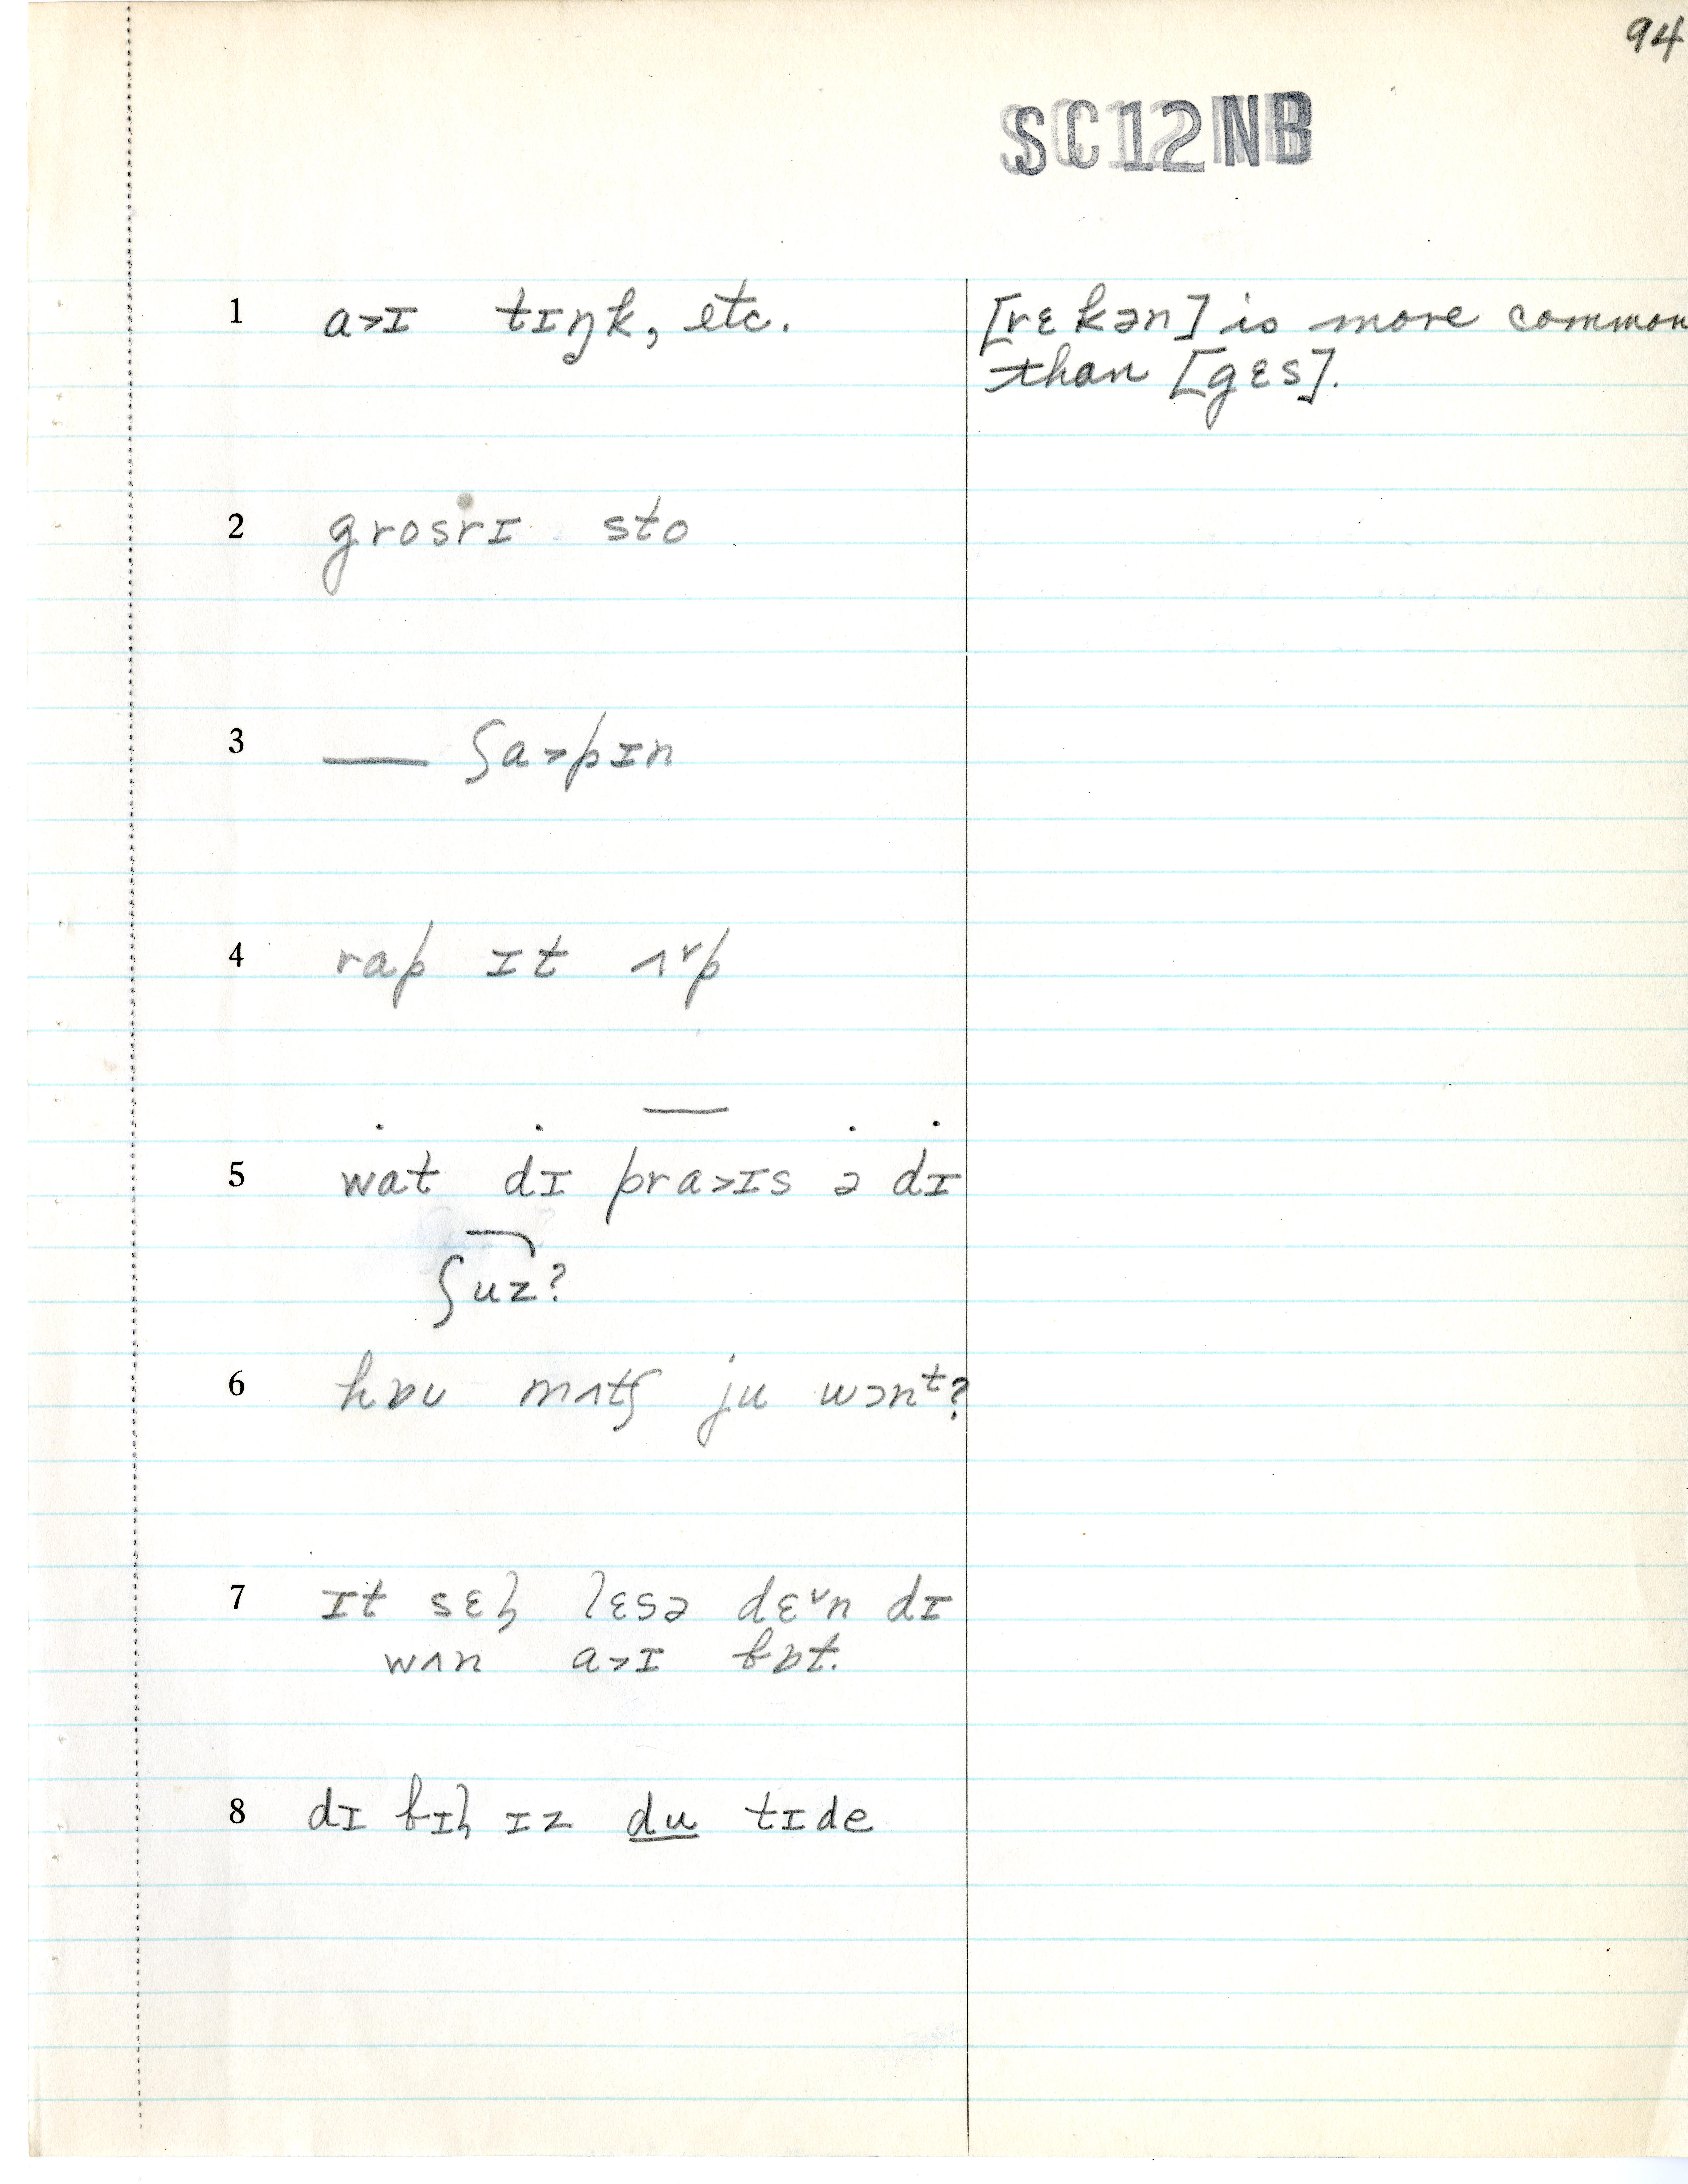 94
SC12NB
1 a˃ɪ tɪŋk, etc. [rɛkən] is more common
than [gɛs].
2 grosrɪ sto
3 — ʃa˃pɪn
4 rap ɪt ʌ˅p
5 wat dɪ pra˃ɪs ə dɪ
ʃuz?
6 hɒʊ mʌtʃ ju wɔnᵗ?
7 ɪt sɛl lɛsə dɛ˅n dɪ
wʌn a˃ɪ bɒt.
8 dɪ bɪl ɪz du tɪde